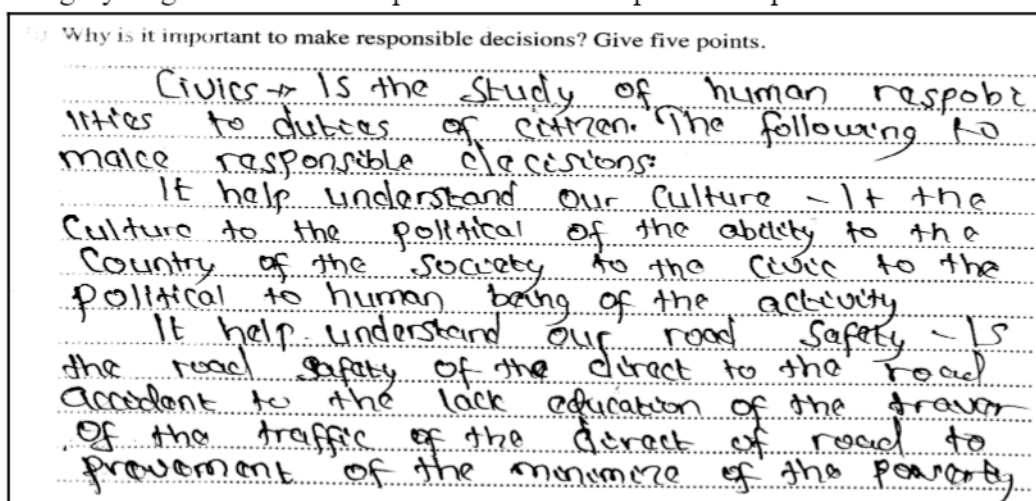 Why is it important to make responsible decisions? Give five points.
Civics → Is the study of human raspobi
lities to duties of citizen. The following to
make rasponsible decisions:
It help understand our Culture - It the
Culture to the political of the ability to the
Country of the Socciety to the Civic to the
Political to human being of the activity
It help understand our road Safety - Is
the road Safaty of the diract to the road
accidant to the lack education of the
Of the traffic of the diract of road to
of the minimize of the